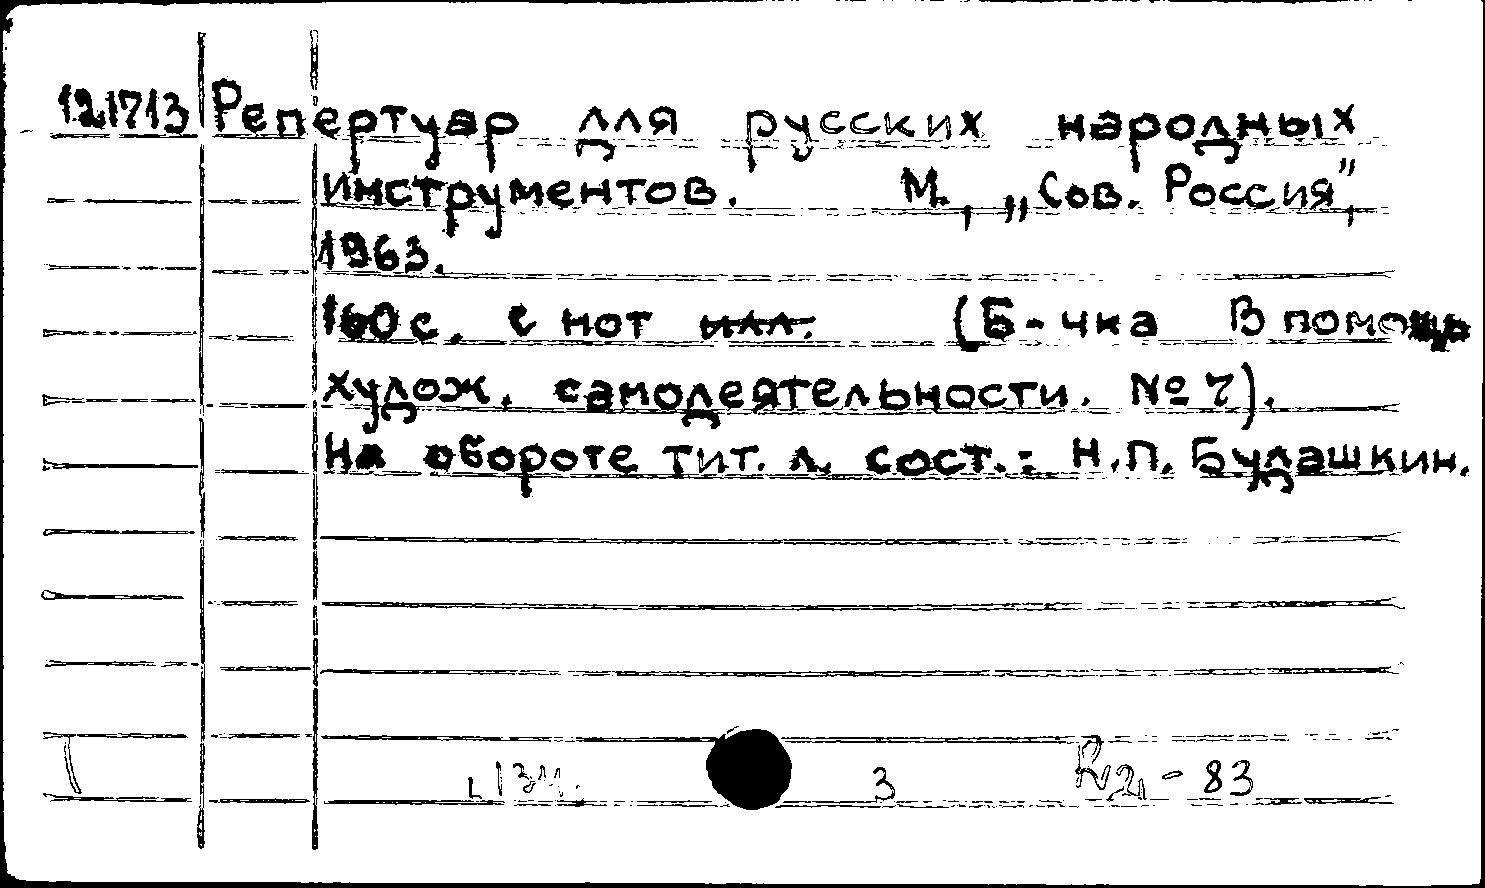 121713 Репертуар для русских народных
инструментов. М., „Сов. Россия”,
1963.
160 с. с нот илл. (Б-чка В помощь
худож. самодеятельности. № 7).
На обороте тит. л. сост.: Н.П. Будашкин.
3 -83